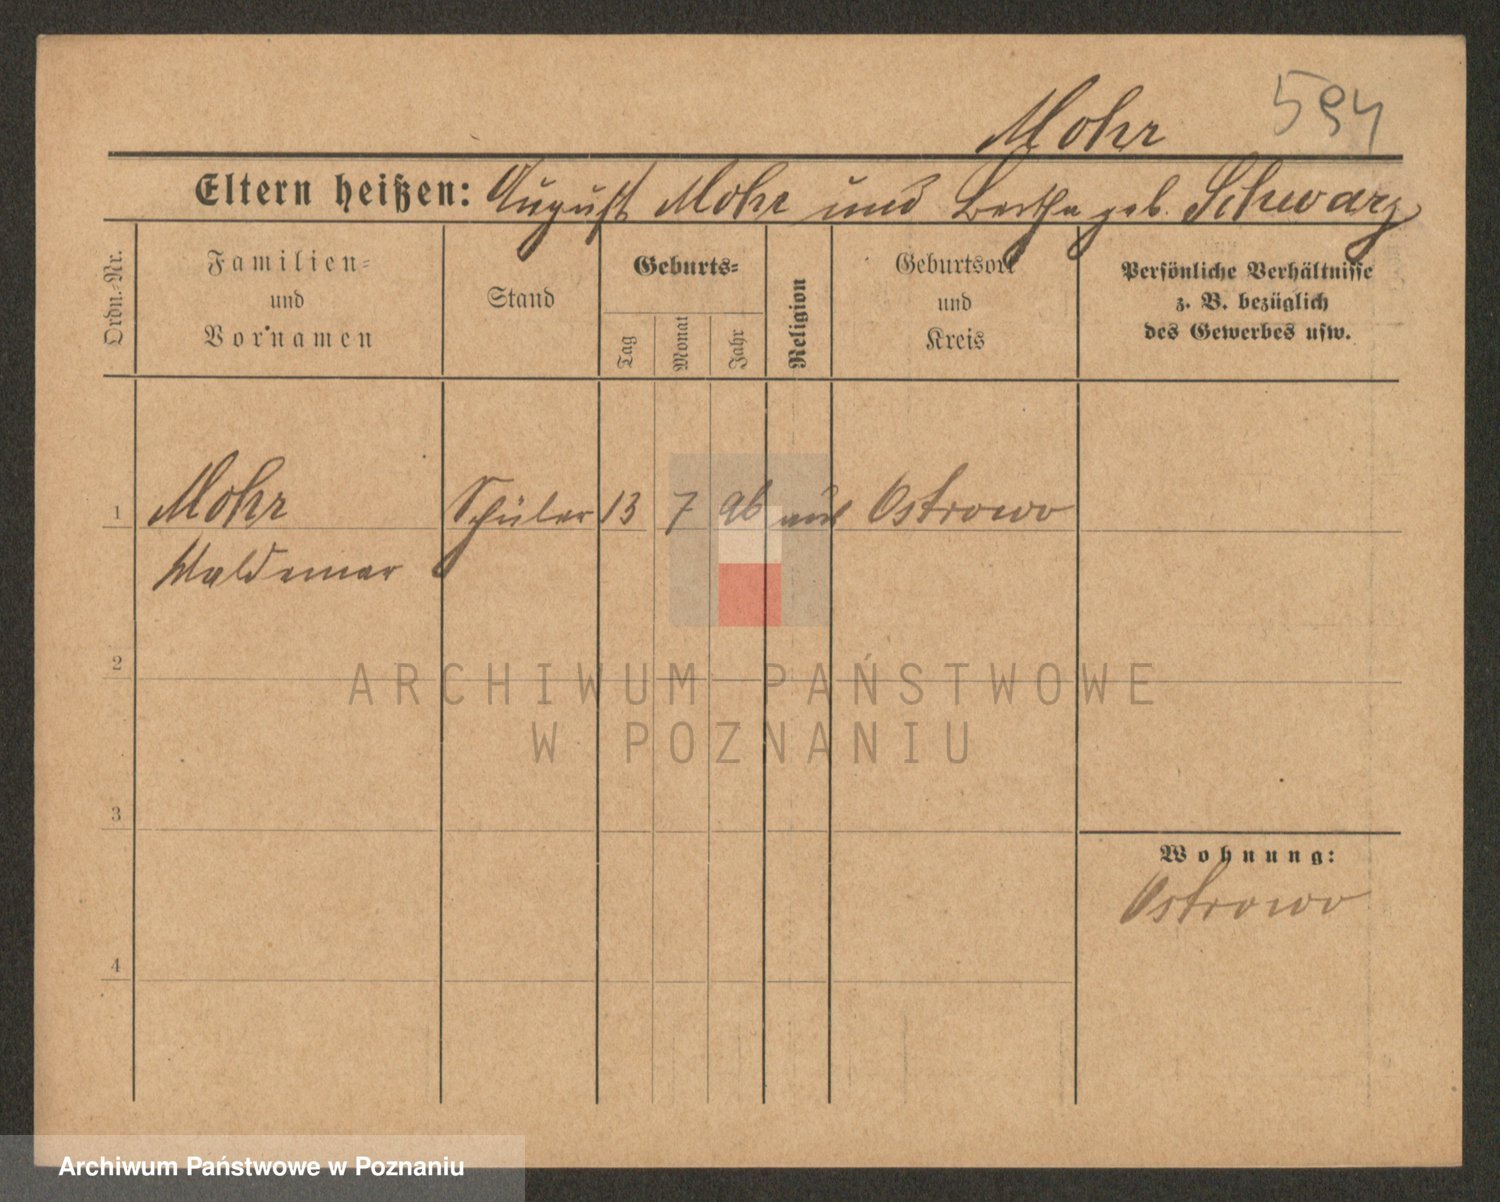 Mohr 594
Eltern heißen: August Mohr und Bertha geb. Schwarz
Ordn.-Nr.
Familien-
und
Vornamen
Stand
Geburts-
Tag
Monat
Jahr
Religion
Geburtsort
und
Kreis
Persönliche Verhältnisse
z. B. bezüglich
des Gewerbes usw.
1 Mohr Schüler 13 7 96 Ostrowo
Waldemar
2
ARCHIWUM PAŃSTWOWE
W POZNANIU
3
Wohnung:
Ostrowo
4
Archiwum Państwowe w Poznaniu